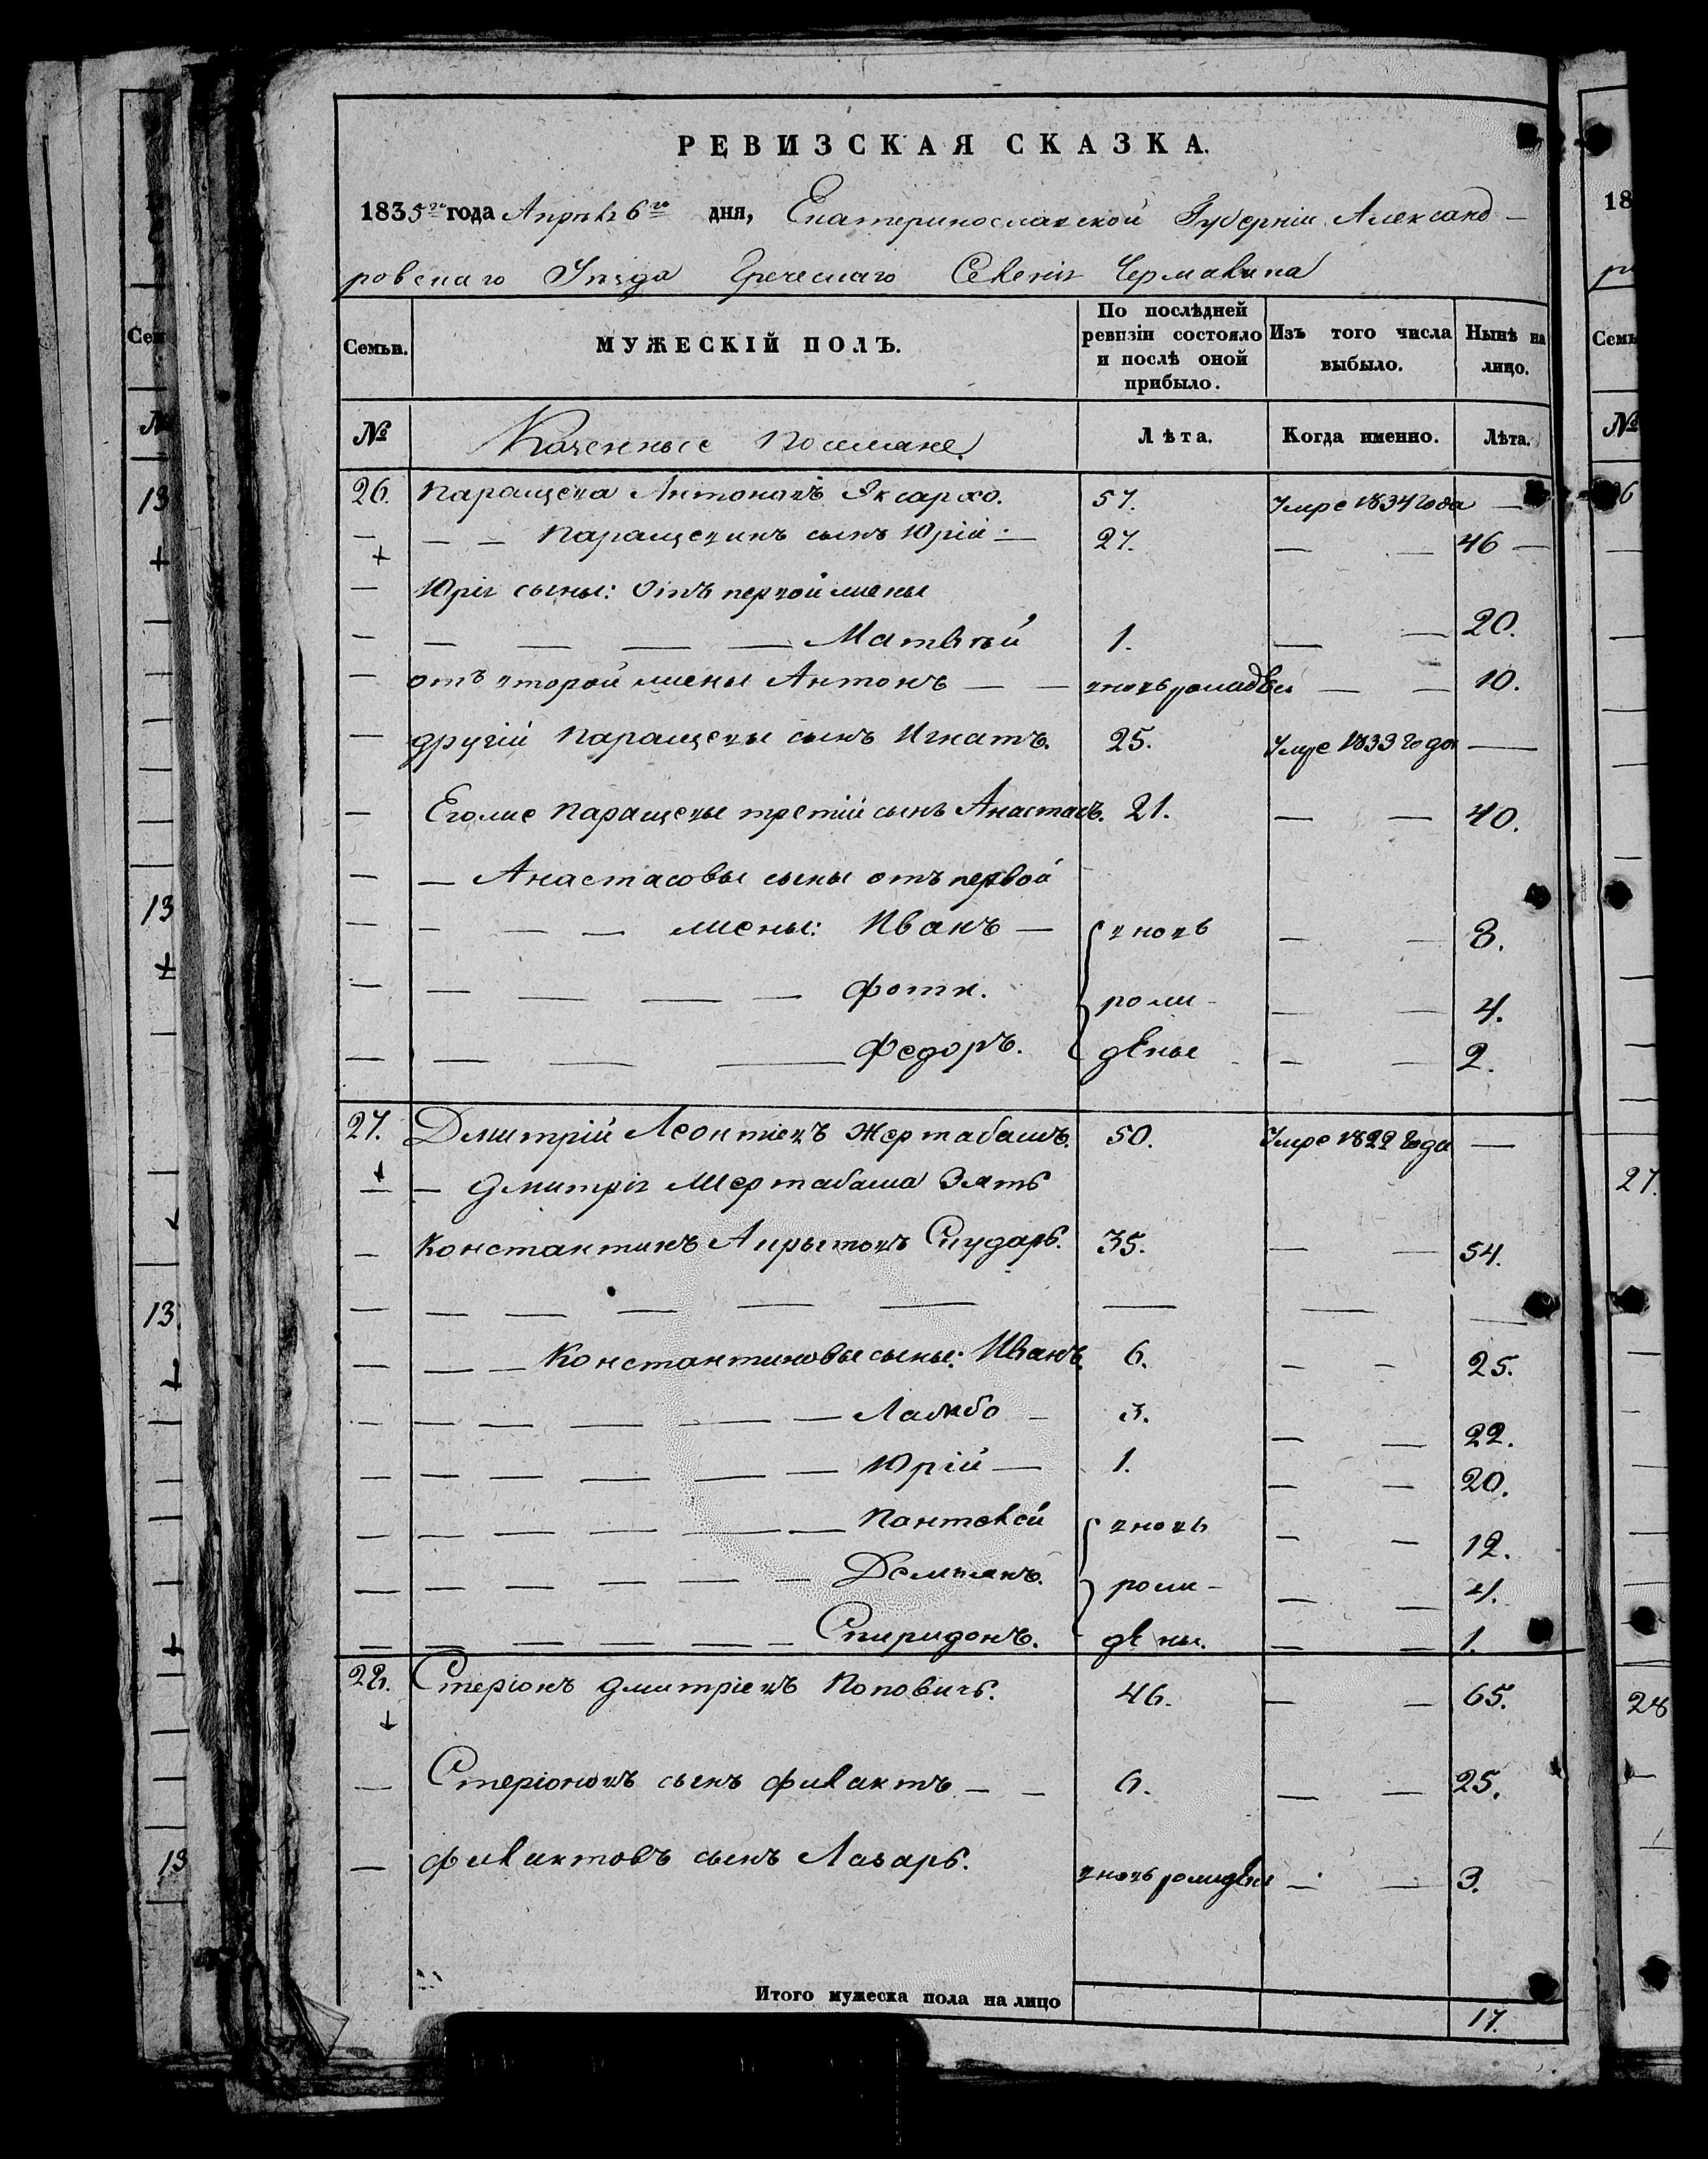 РЕВИЗСКАЯ СКАЗКА.
1835го года Апреля 6го дня, Екатеринославской Губерніи Александ-
ровскаго Уезда Греческаго Селенія Чермалыка
Семьи. МУЖЕСКІЙ ПОЛЪ. По послѣдней ревизіи состояло и послѣ оной прибыло. Изъ того числа выбыло. Нынѣ на лицо.
№ Казенные Поселяне Лѣта. Когда именно. Лѣта.
26. Паращева Антоновъ Эксархо. 57. Умре 1834 года —
— — Паращевинъ сынъ Юрій — 27. — — 46 —
— Юрія сыны: Отъ первой жены
— — — — — Матвѣй 1. — — 20.
— отъ второй жены Антонъ — — вновь рожденъ — — 10.
— другій Паращевы сынъ Игнатъ. 25. Умре 1833 года —
— Еголие Паращевы третій сынъ Анастасъ. 21. — — 40.
— — Анастасовы сыны отъ первой
— — — — жены: Иванъ — вновь — — 8.
— — — — — Фоти. рож- — — 4.
— — — — Федоръ. дены — — 2.
27. Дмитрій Леонтіевъ Жертабашъ. 50. Умре 1822 года —
— — Дмитрія Жертабаша Зять
— Константинъ Апрытовъ Снударь. 35. — — 54.
— — — — — — — — —
— — — Константиновы сыны: Иванъ. 6. — — 25.
— — — — — — — Ламбо — 3. — — 22.
— — — — — — — Юрій — 1. — — 20.
— — — — — — — Пантелей вновь — — 12.
— — — — — — — Демьянъ. рож- — — 4.
— — — — — — — Спиридонъ. дены. — — 1.
28. Стеріонъ Дмитріевъ Поповичь. 46. — — 65.
— Стеріоновъ сынъ Филактъ — — 6. — — 25.
— Филактовъ сынъ Лазарь. вновь рожденъ — — 3.
Итого мужеска пола на лицо 17.